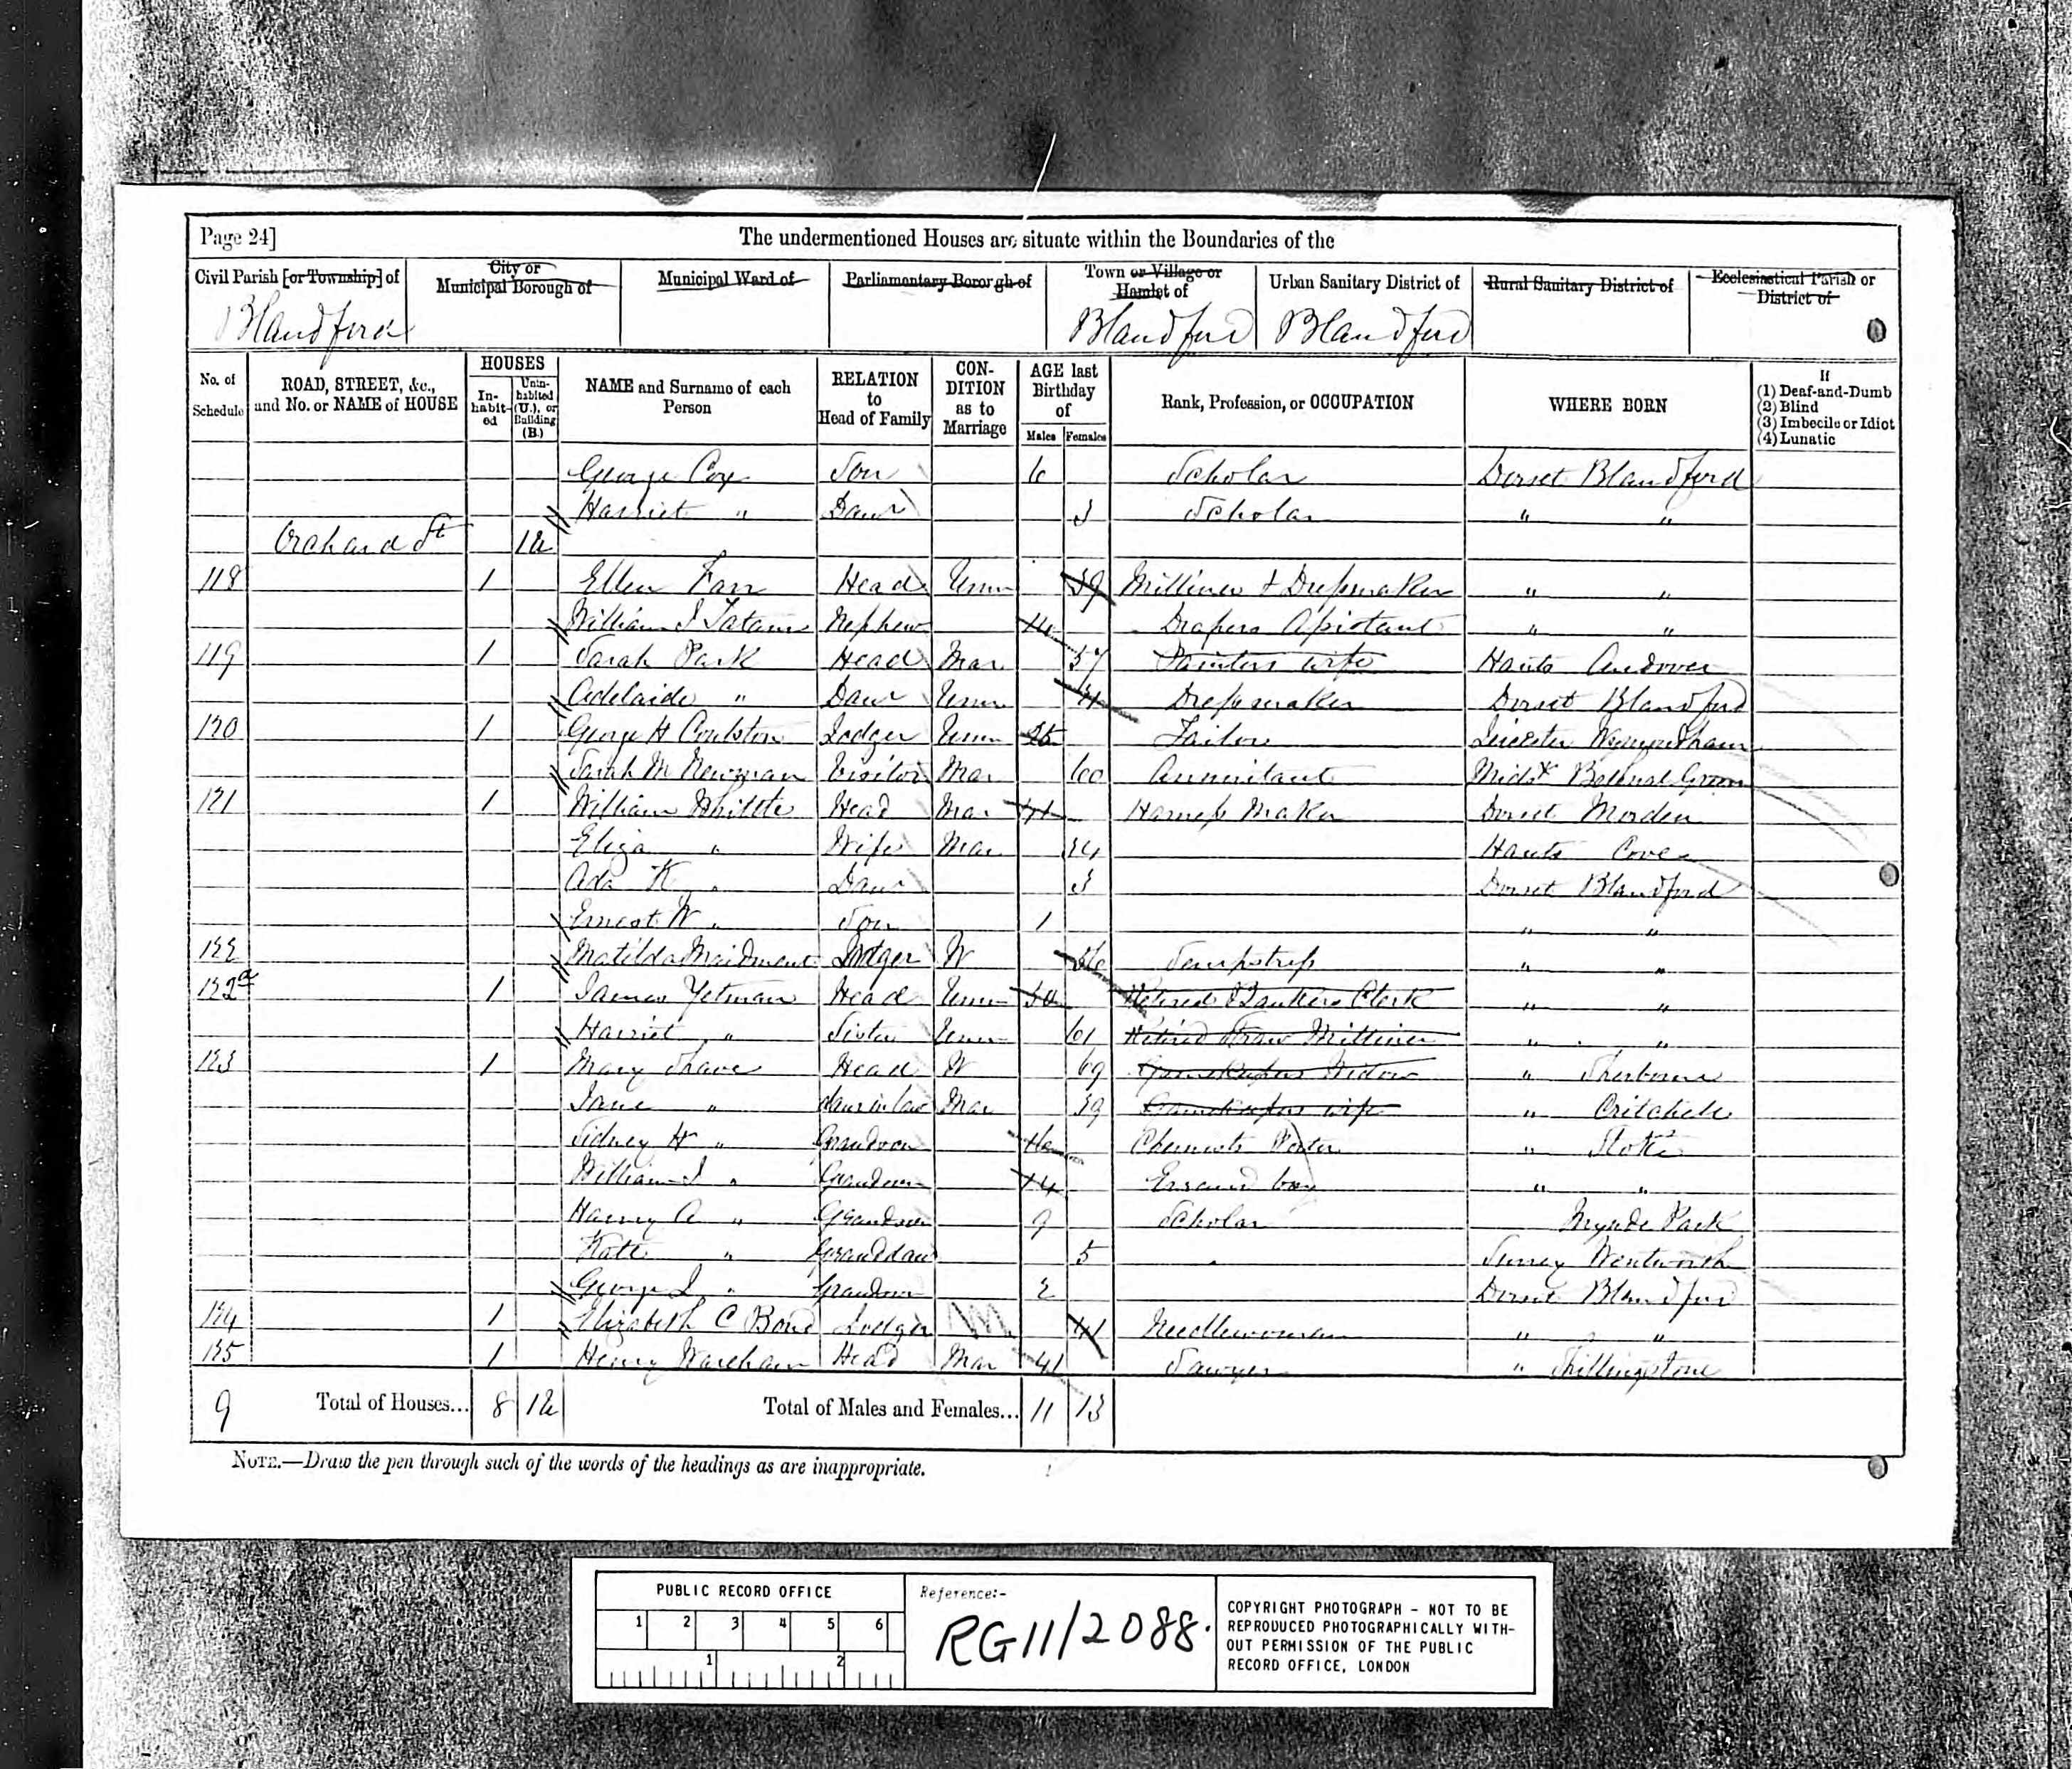 Page 24]
The undermentioned Houses are situate within the Boundaries of the
Civil Parish [or Township] of
City or
Municipal Borough of
Municipal Ward of
Parliamentary Borough of
Town or Village or
Hamlet of
Urban Sanitary District of
Rural Sanitary District of
Ecclesiastical Parish or
District of
Blandford
Blandford
Blandford
No. of
Schedule
ROAD, STREET, &c.,
and No. or NAME of HOUSE
HOUSES
In-
habit-
ed
Unin-
habited
(U.), or
Building
(B.)
NAME and Surname of each
Person
RELATION
to
Head of Family
CON-
DITION
as to
Marriage
AGE last
Birthday
of
Males
Females
Rank, Profession, or OCCUPATION
WHERE BORN
If
(1) Deaf-and-Dumb
(2) Blind
(3) Imbecile or Idiot
(4) Lunatic
George Cox Son 6 Scholar Dorset Blandford
Harriet " Daur 3 Scholar " "
Orchard St 1U
118 1 Ellen Farr Head Unm 39 Milliner & Dressmaker " "
William J Tatam Nephew Drapers Assistant " "
119 1 Sarah Park Head Mar 57 Painters wife Hants Andover
Adelaide " Daur Unm Dressmaker Dorset Blandford
120 1 George H Coulston Lodger Unm Tailor Leicester Wymondham
Sarah M Newman Visitor Mar 60 Annuitant Midx Bethnal Green
121 1 William Whittle Head Mar 41 Harness Maker Dorset Morden
Eliza " Wife Mar 34 Hants Cove
Ada K " Daur 3 Dorset Blandford
Ernest W " Son 1 " "
122 Matilda Maidment Lodger W Sempstress " "
122a 1 James Yetman Head Unm Retired Bankers Clerk " "
Harriet " Sister Unm 61 Retired Straw Milliner " "
123 1 Mary Shave Head W 69 Gamekeepers Widow " Sherborne
Jane " daur in law Mar 39 Gamekeepers wife " Critchell
Sidney H " Grandson 16 Chemists Porter " Stoke
William J " Grandson 14 Errand boy " "
Harry A " Grandson 9 Scholar Park
Kate " Granddaur 5 Surrey Wentworth
George " Grandson 2 Dorset Blandford
124 1 Elizabeth C Bond Lodger 41 Needlewoman " "
125 1 Henry Wareham Head Mar 41 Sawyer " Shillingstone
9 Total of Houses... 8 1U Total of Males and Females... 11 13
NOTE.—Draw the pen through such of the words of the headings as are inappropriate.
PUBLIC RECORD OFFICE
1 2 3 4 5 6
1 2
Reference:-
RG11/2088.
COPYRIGHT PHOTOGRAPH - NOT TO BE
REPRODUCED PHOTOGRAPHICALLY WITH-
OUT PERMISSION OF THE PUBLIC
RECORD OFFICE, LONDON